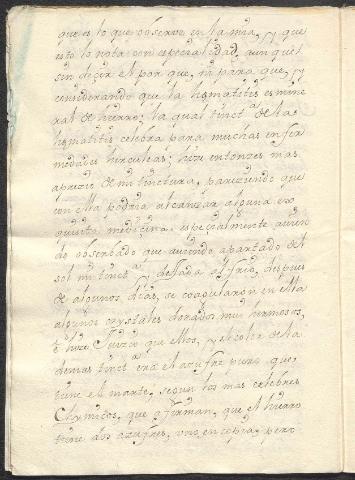 que es lo que observe en la mia, y que
esto lo nota con especialidad, aunque
sin decir el por que, ni para que, y
considerando que la hęmatitis es mine
ral de hierro; la qual tinct.ª de la
hęmatitis celebra para muchas enfer
medades herculeas; hize entonzes mas
aprezio de mi tinctura, pareziendo que
con ella podria alcanzar alguna ex
quisita medicina. especialmente avien
do observado que aviendo apartado del
sol mi tinct.ª y dejada al frio, despues
de algunos dias, se coagularon en ella
algunos crystales dorados mui hermosos,
è hize Juizio que ellos, y el color de la
demas tinct.ª era el azufre puro que
tiene el marte, segun los mas celebres
Chymicos, que afirman, que el hierro
tiene dos azufres, uno en copia, pero